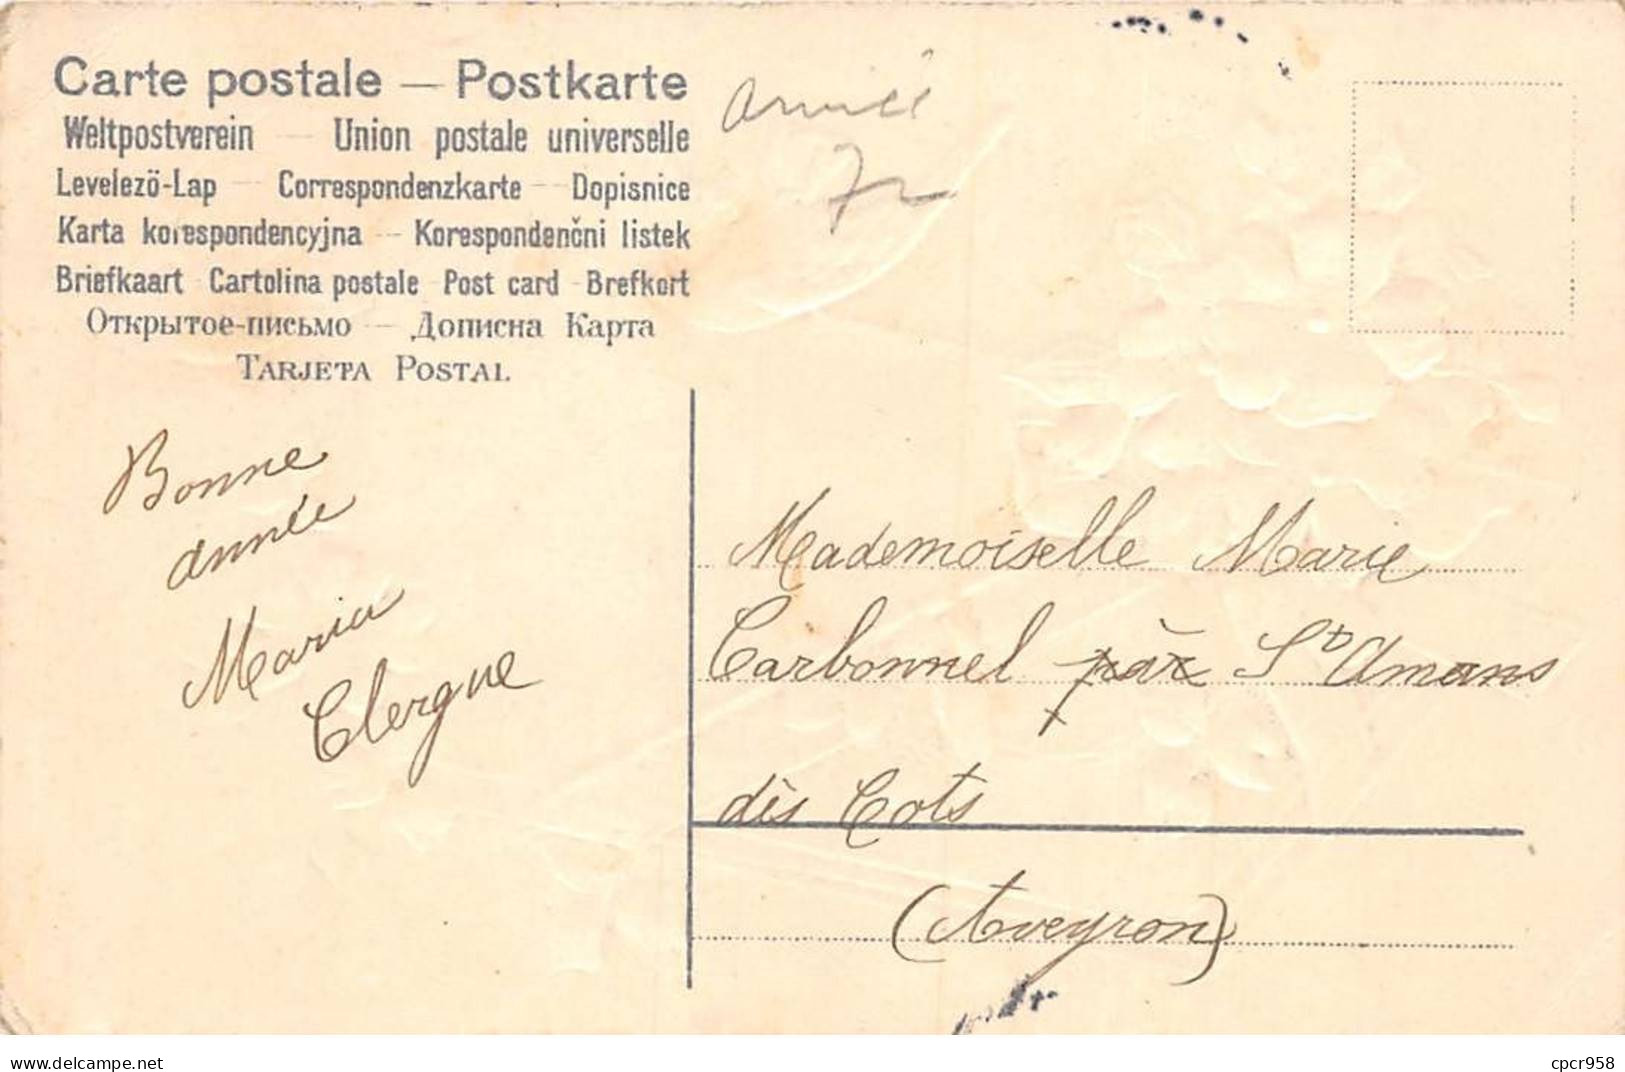 Carte postale — Postkarte
Weltpostverein — Union postale universelle
Levelezö-Lap — Correspondenzkarte — Dopisnice
Karta korespondencyjna — Korespondenčni listek
Briefkaart - Cartolina postale - Post card - Brefkort
Открытое-письмо — Дописна Карта
TARJETA POSTAL
année
72
Bonne
année
Maria
Clergue
Mademoiselle Marie
Carbonnel par St Amans
dès Cots
(Aveyron)
www.delcampe.net
cpcr958